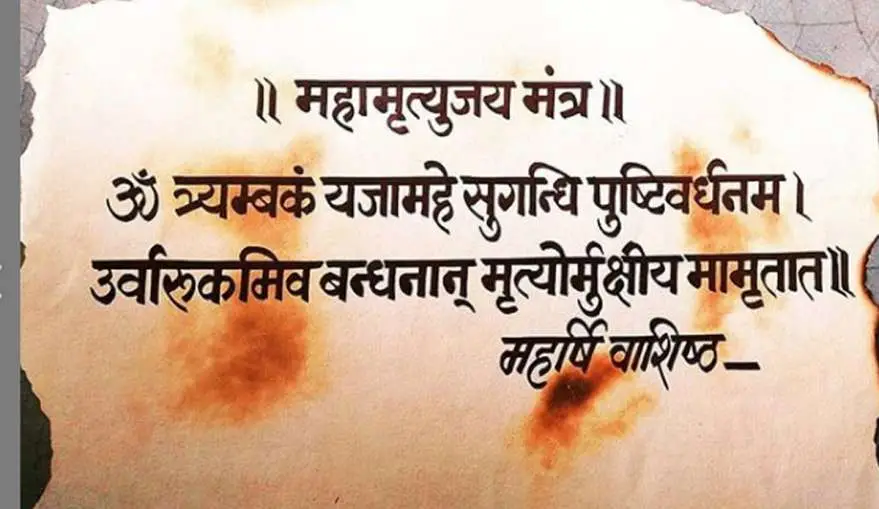 ॥ महामृत्युजय मंत्र ॥
ॐ त्र्यम्बकं यजामहे सुगन्धि पुष्टिवर्धनम।
उर्वारुकमिव बन्धनान् मृत्योर्मुक्षीय मामृतात॥
महर्षि वाशिष्ठ _